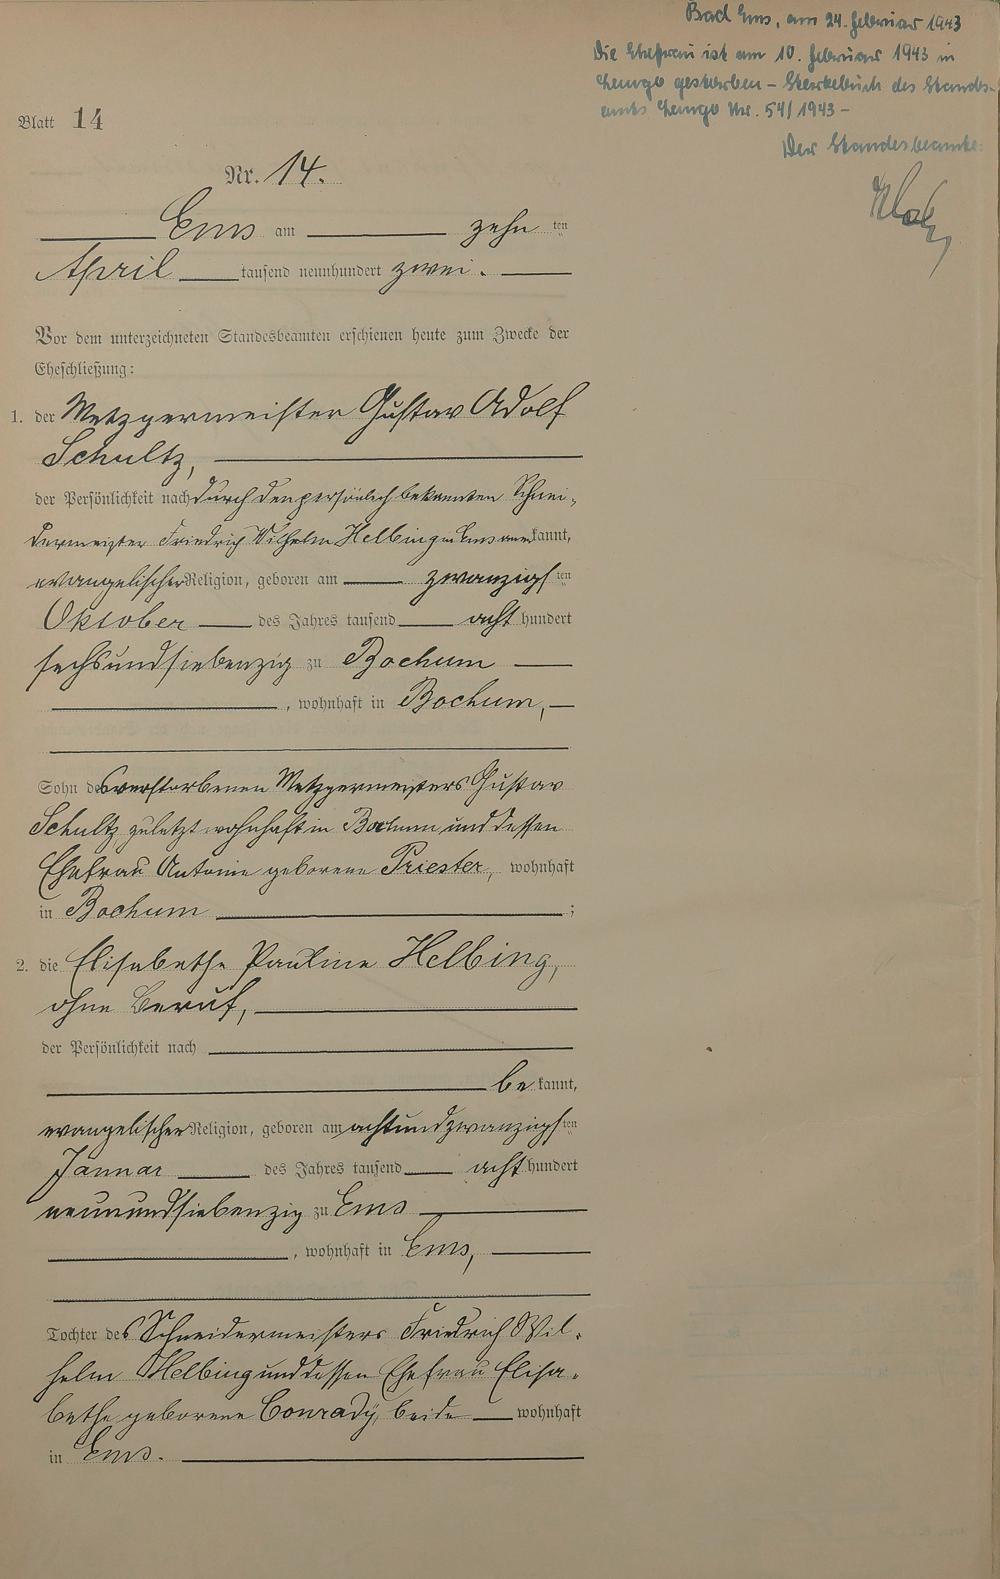 Bad Ems, am 24. Februar 1943
Die Ehefrau ist am 10. Februar 1943 in
Lemgo gestorben – Sterbebuch des Standes-
amts Lemgo Nr. 54/1943 –
Der Standesbeamte:
Blatt 14
Nr. 14.
Ems am zehn ten
April tausend neunhundert zwei.
Vor dem unterzeichneten Standesbeamten erschienen heute zum Zwecke der
Eheschließung:
1. der Metzgermeister Gustav Adolf
Schultz,
der Persönlichkeit nach durch den persönlich bekannten Schnei-
dermeister Friedrich Wilhelm Helbing in Ems anerkannt,
evangelischer Religion, geboren am zwanzigsten
Oktober des Jahres tausend acht hundert
sechsundsiebenzig zu Bochum
, wohnhaft in Bochum,
Sohn des verstorbenen Metzgermeisters Gustav
Schultz zuletzt wohnhaft in Bochum und dessen
Ehefrau Antonie geborene Priester, wohnhaft
in Bochum ;
2. die Elisabethe Pauline Helbing,
ohne Beruf,
der Persönlichkeit nach
bekannt,
evangelischer Religion, geboren am achtundzwanzigsten
Januar des Jahres tausend acht hundert
neunundsiebenzig zu Ems
, wohnhaft in Ems,
Tochter des Schneidermeisters Friedrich Wil-
helm Helbing und dessen Ehefrau Elisa-
bethe geborene Conrady, beide wohnhaft
in Ems.